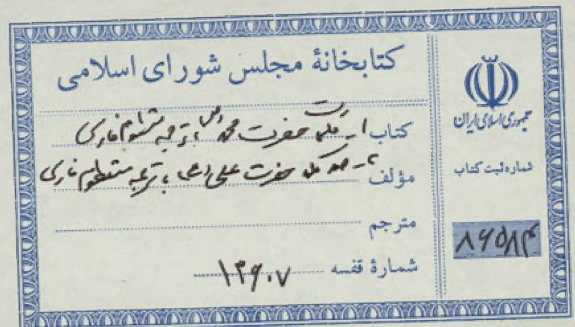 کتابخانهٔ مجلس شورای اسلامی
کتاب ۱ـ کلمات حضرت محمد (ص) با ترجمه منظوم فارسی
مؤلف ۲ـ صد کلمه حضرت علی (ع) با ترجمه منظوم فارسی
مترجم
شمارهٔ قفسه ۱۳۶۰۷
جمهوری اسلامی ایران
شماره ثبت کتاب
۸۶۵۸۴